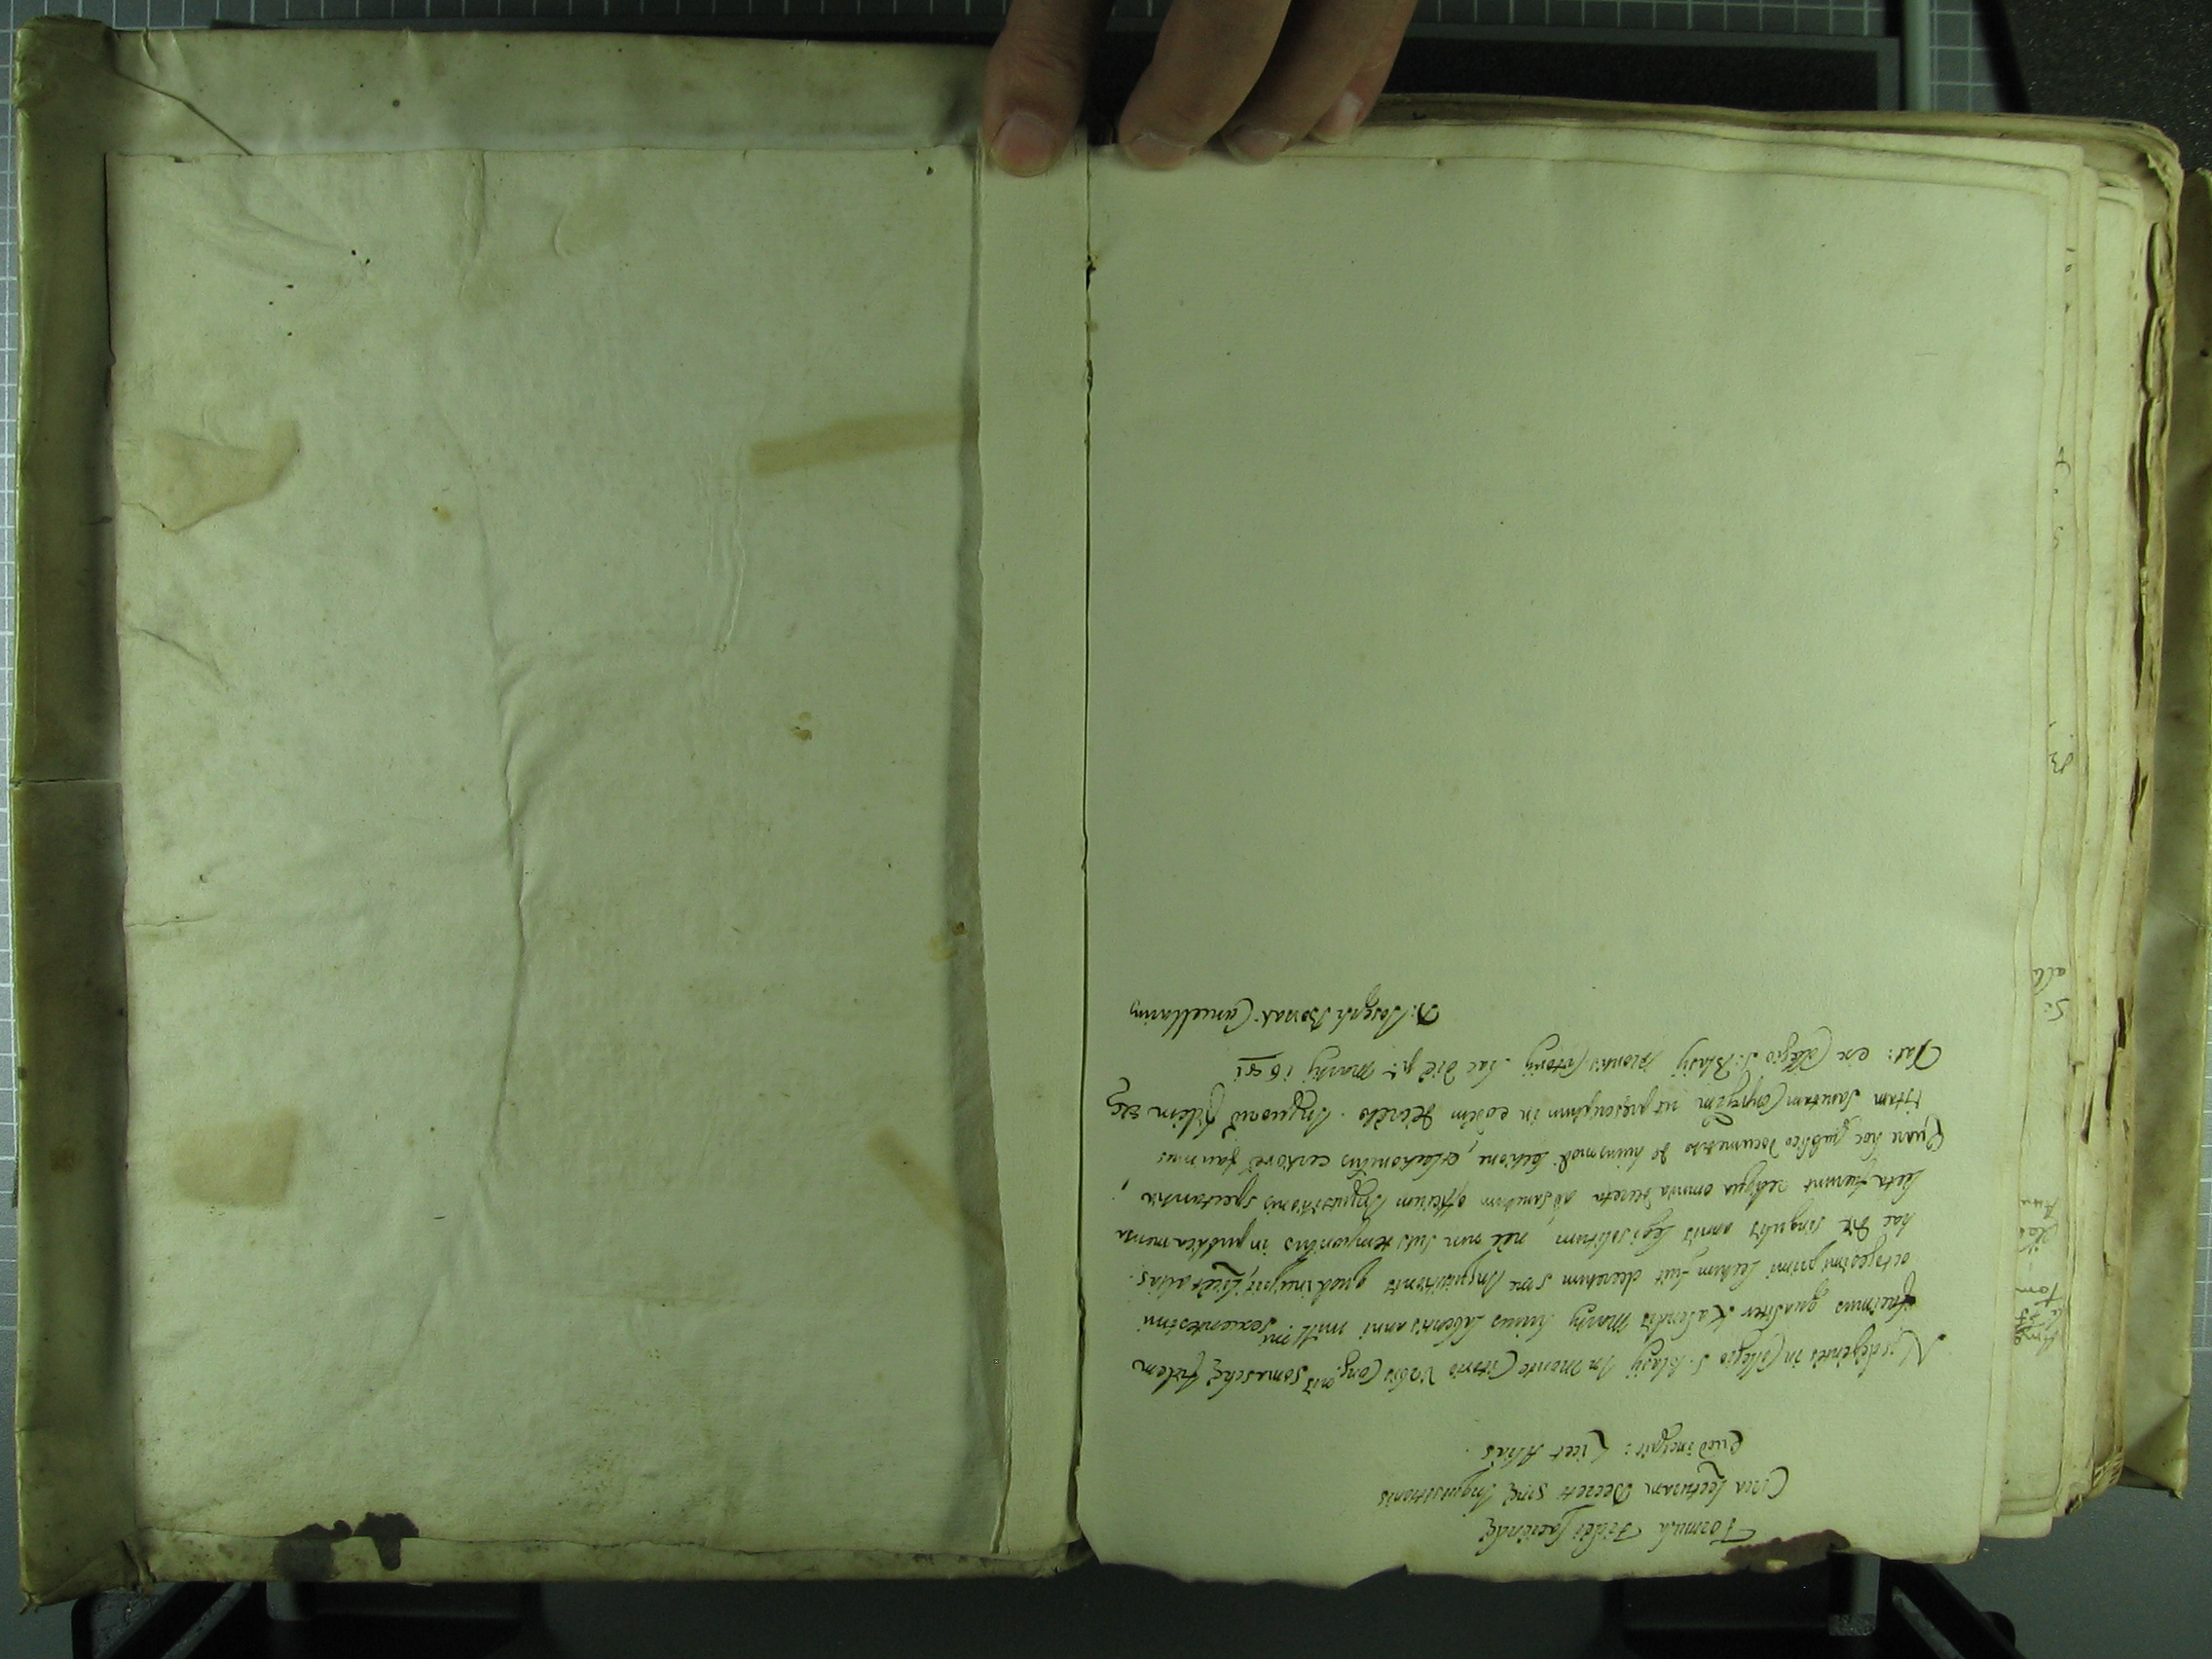 Formula Fidei faciendę
Circa Lecturam Decreti Sanctę Inquisitionis
Quod incipit: Licet Aliàs.
Nos degentes in Collegio S. Blasij In Monte Citorio Vrbis Cong.onis Somaschę fidem
facimus qualiter Kalendis Martij huius labentis anni mill.mi sexcentesimi
octogesimi primi lectum fuit decretum Inquisitionis quod incipit, Licet alias.
hac die singulis annis legi solitum, nec non suis temporibus in publica mensa
lecta fuerunt reliqua omnia decreta ad sanctum officium Inquisitionis spectantia,
Quare hoc publico documento de huiusmodi lectione, certiorem facimus
Sanctam in eodem decreto. In quorum fidem
Dat: ex Collegio S. Blasij Montis Citorij hac die p.a Martij 1681
D. Joseph Cancellarius